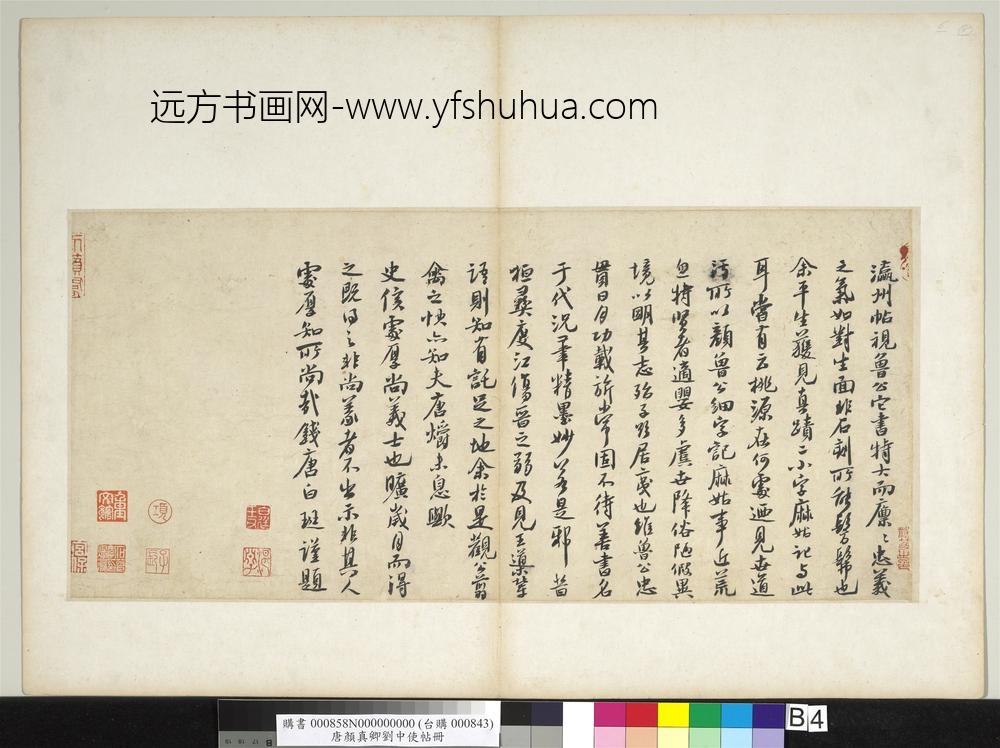 远方书画网-www.yfshuhua.com
瀛州帖視魯公它書特大而凜〻忠義
之氣如對生面非石刻所能髣髴也
余平生獲見真蹟二小字麻姑記与此
耳嘗有云桃源在何處迺見世道
污所以顏魯公細字記麻姑事近荒
忽特賢者適嬰多虞世降俗陋假異
境以明其志孫子欲居夷也維魯公忠
貫日月功載旂常固不待善書名
于代況筆精墨妙若是邪昔
桓彝度江傷晉之弱及見王導共
語則知有託足之地余於是觀公翦
禽之快亦知夫唐爝未息歟
史侯處厚尚義士也曠歲月而得
之既得之非尚義者不出示非其人
處厚知所尚哉錢唐白珽謹題
項
購書 000858N000000000 (台購 000843)
唐顏真卿劉中使帖冊
B 4